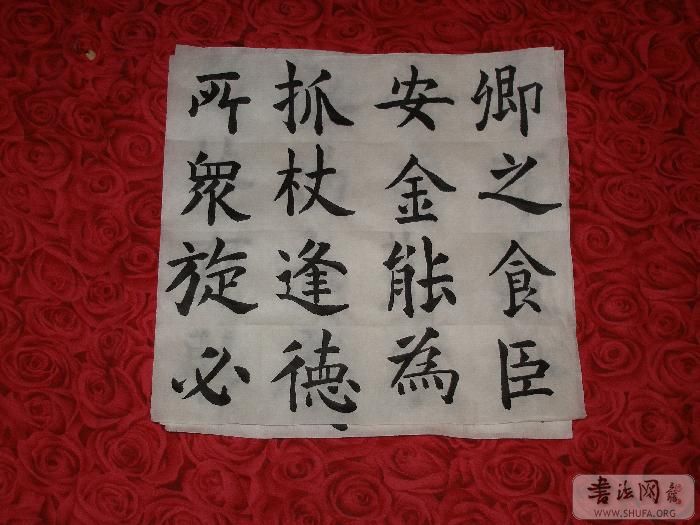 卿之食臣
安金能為
抓杖逢德
所衆旋必
书法网
WWW.SHUFA.ORG